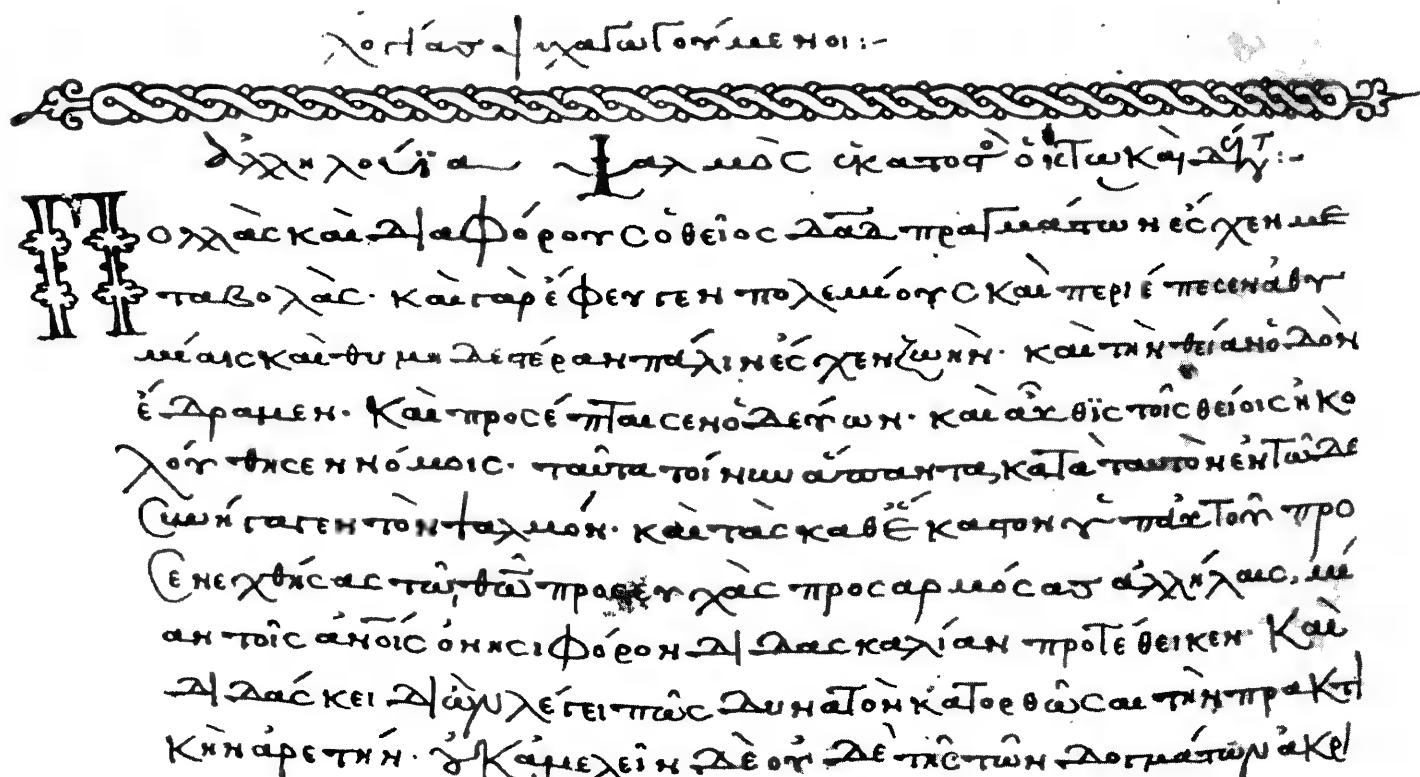 λογίας ψυχαγωγούμενοι:-
ἀλληλούϊα ψαλμὸς ἑκατοστὸ ὀκτωκαὶ:-
Πολλὰς καὶ διαφόρους ὁ θεῖος δα̅δ πραγμάτων ἔσχεν με
ταβολάς· καὶ γὰρ ἔφευγεν πολεμίους καὶ περιέπεσεν ἀθυ
μίαις καὶ θυμηδεστέραν πάλιν ἔσχεν ζωήν· καὶ τὴν θείαν ὁδὸν
ἔδραμεν· καὶ προσέπταισεν ὁδεύων· καὶ αὖθϊς τοῖς θείοις ἠκο
λούθησεν νόμοις· ταῦτα τοίνυν ἅπαντα, κατὰ ταυτὸν ἐν τῶδε
συνήγαγεν τὸν ψαλμόν· καὶ τὰς καθέκαστον ὑπ' αὐτοῦ προ
σενεχθήσας τῶ θω̅ προσευχὰς προσαρμόσας ἀλλήλαις, μί
αν τοῖς ἀνο̅ις ὀνησιφόρον διδασκαλίαν προτέθεικεν· Καὶ
διδάσκει δι' ὧν λέγει πῶς δυνατὸν κατορθῶσαι τὴν πρακτι
κὴν ἀρετήν· οὐκ ἀμελεῖ δὲ οὐδὲ τῆς τῶν δογμάτων ἀκρι